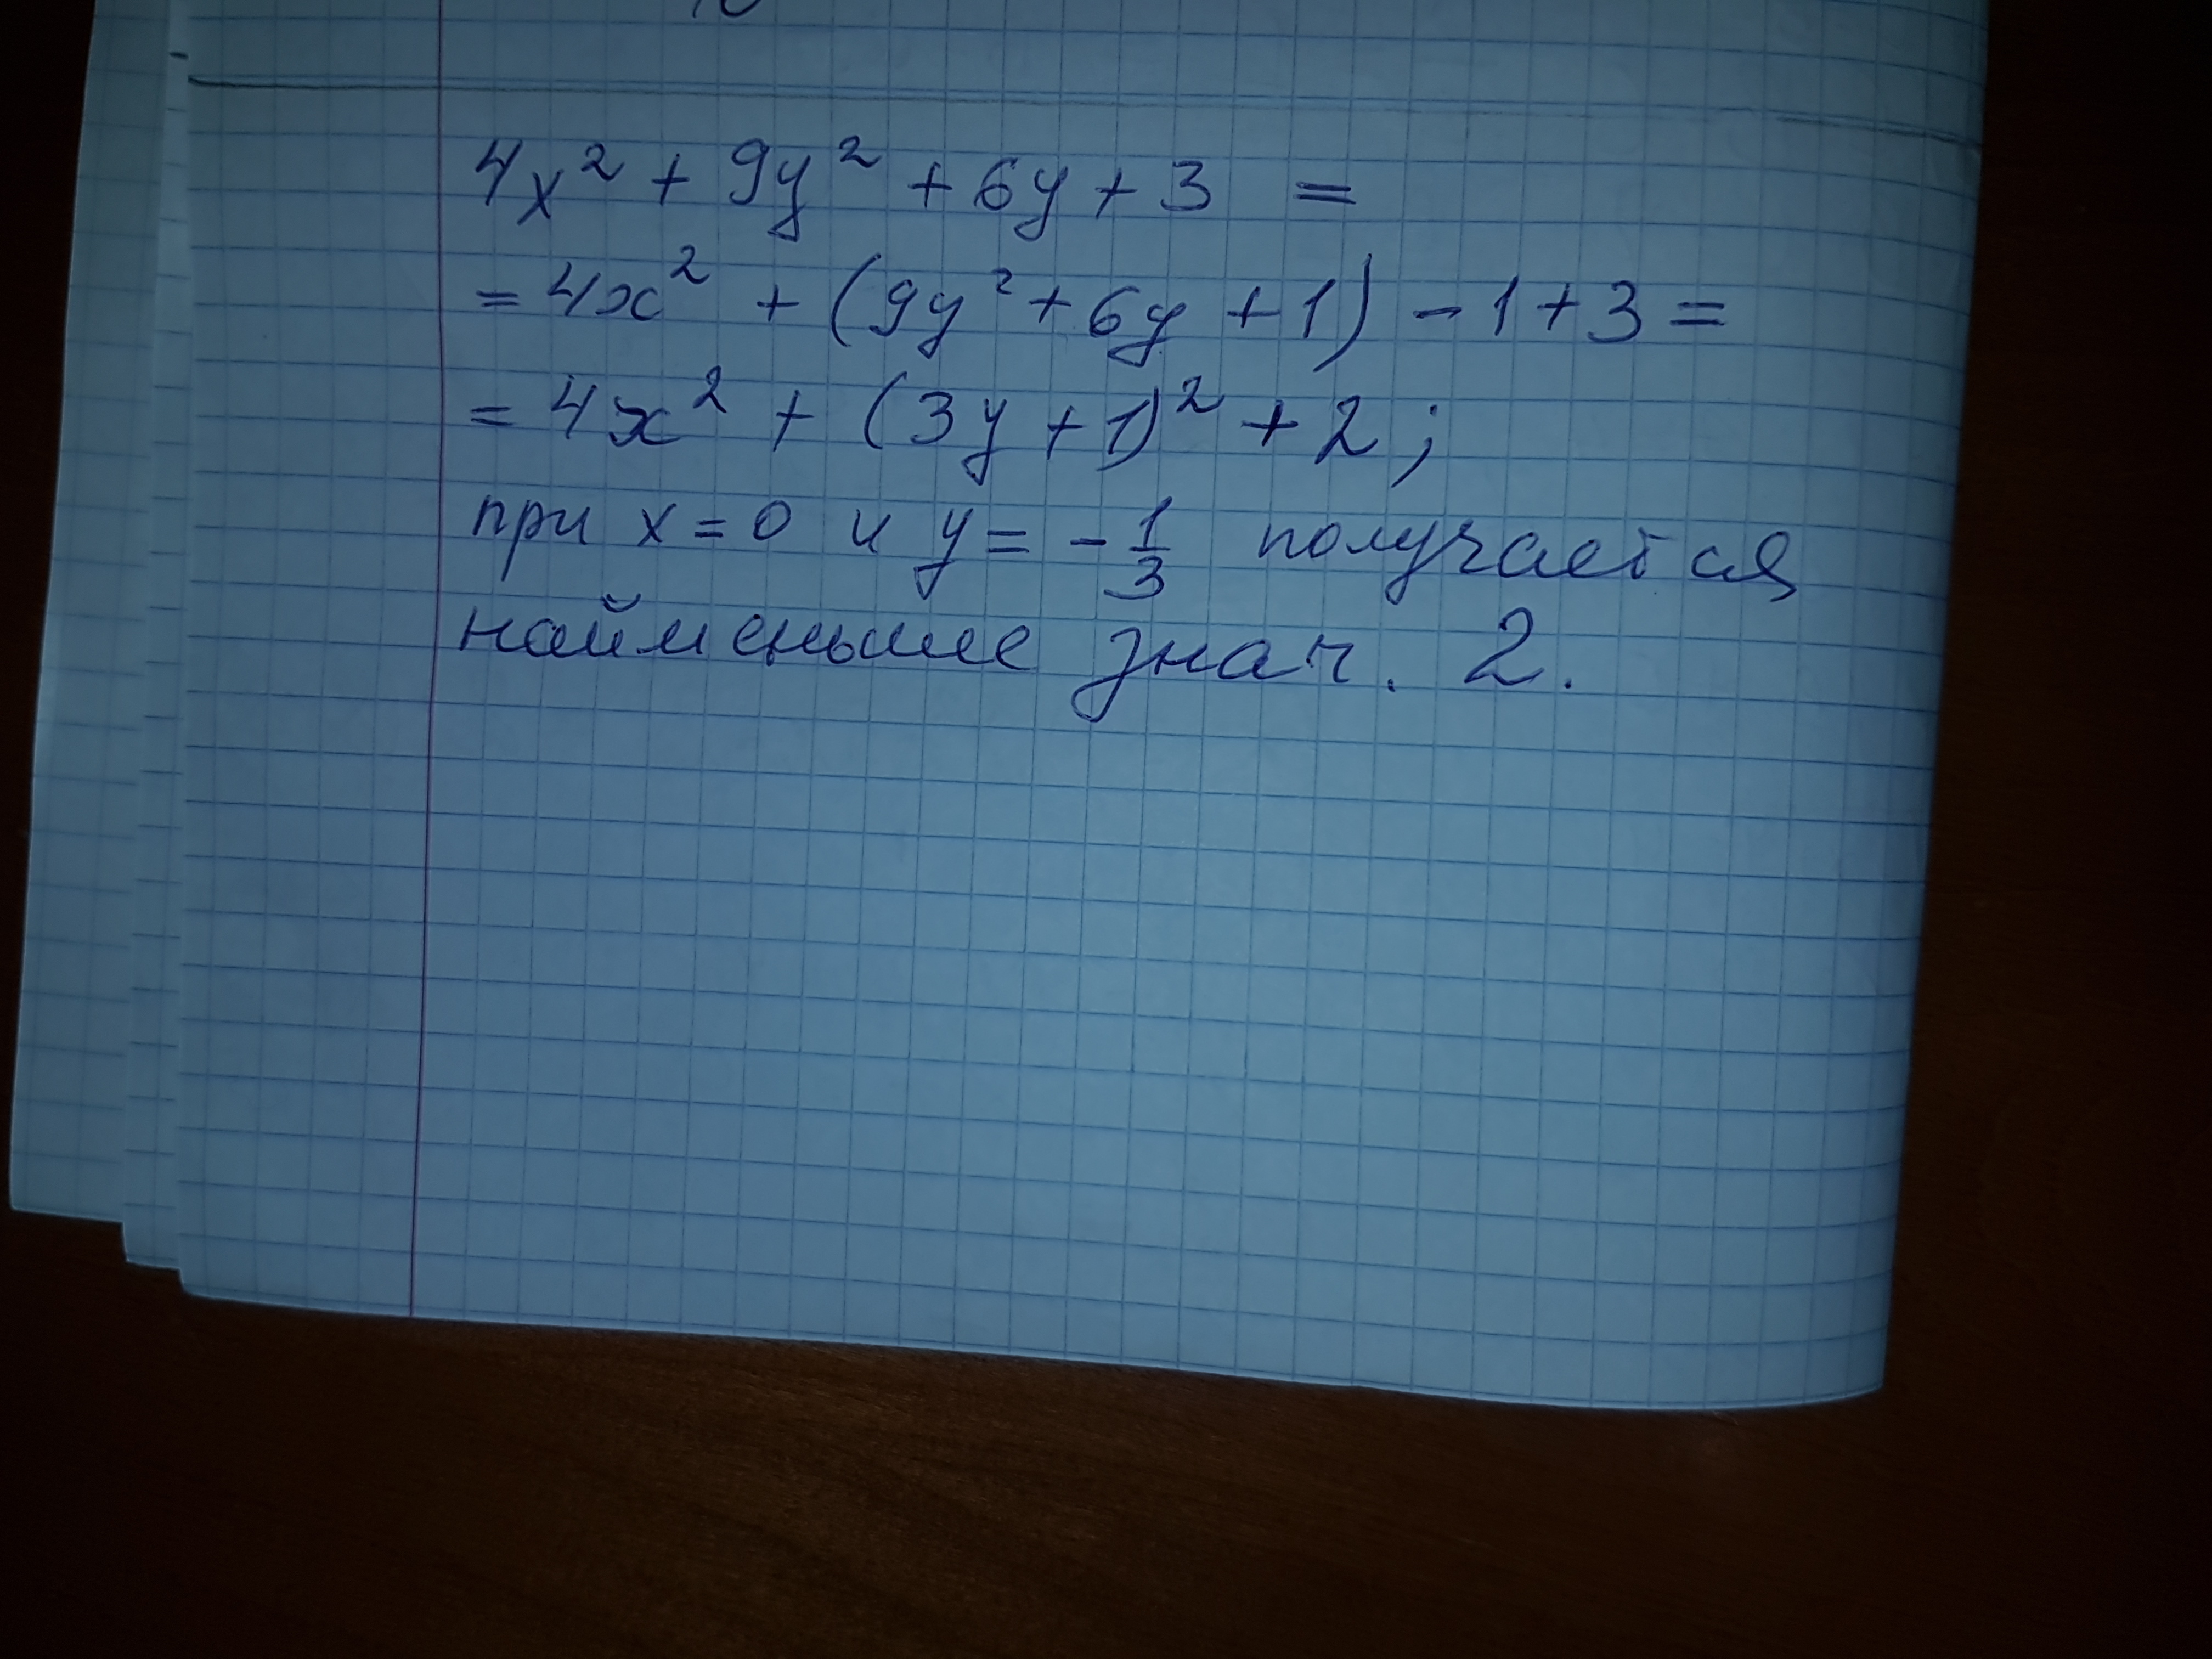 4x² + 9y² + 6y + 3 =
= 4x² + (9y² + 6y + 1) - 1 + 3 =
= 4x² + (3y + 1)² + 2;
при x = 0 и y = - 1/3 получается
наименьшее знач. 2.